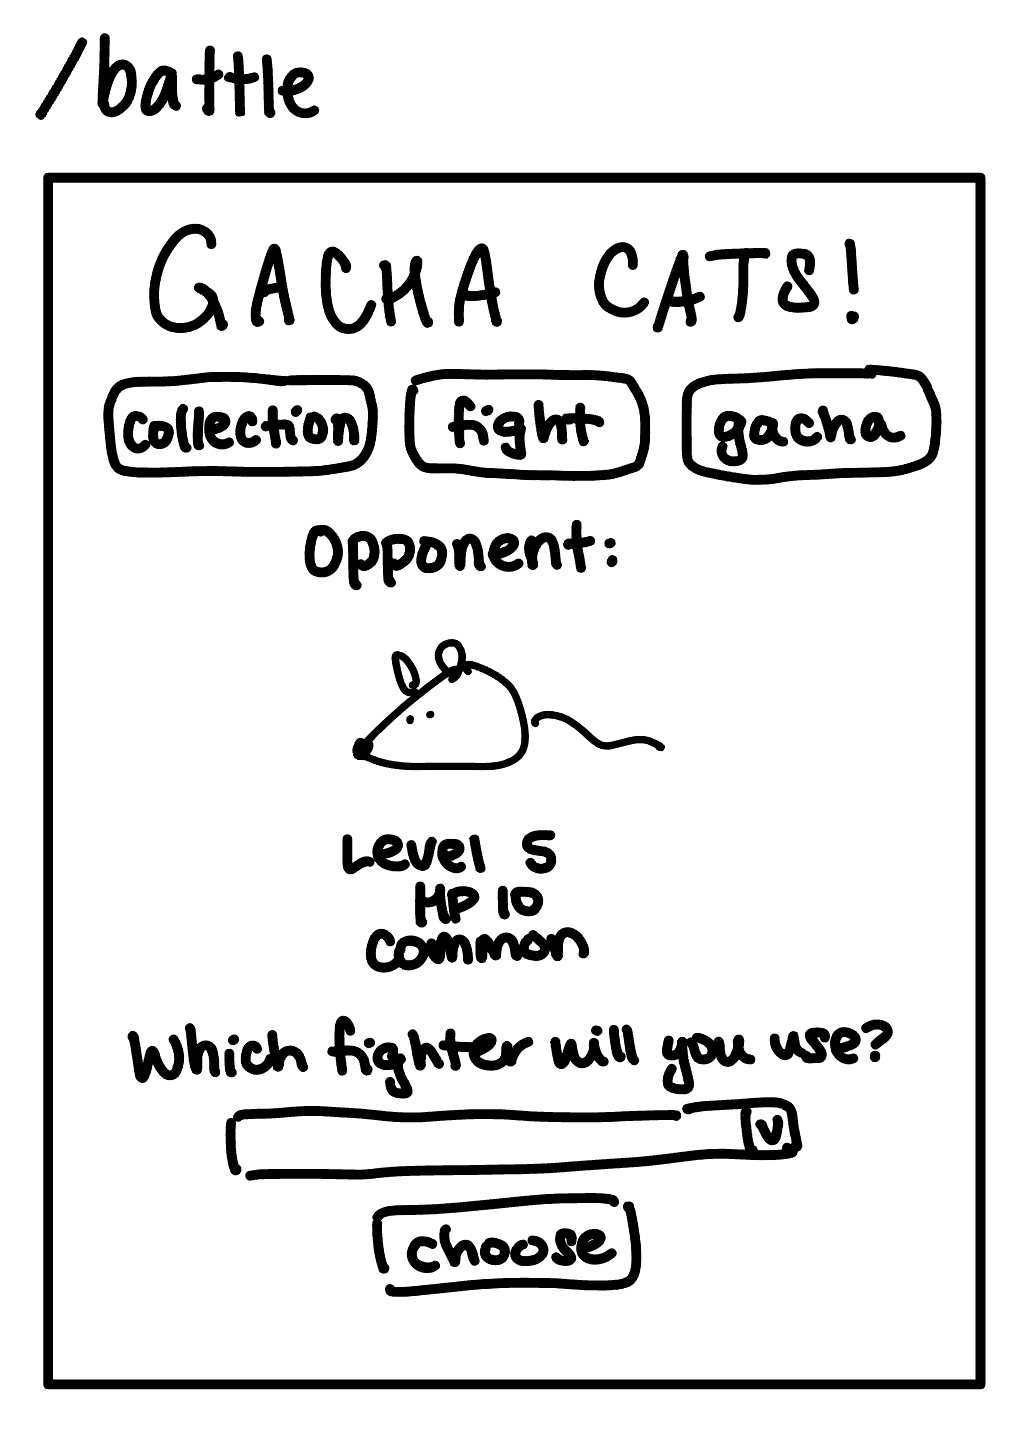 /battle
GACHA CATS!
collection fight gacha
Opponent:
Level 5
HP 10
Common
Which fighter will you use?
v
choose